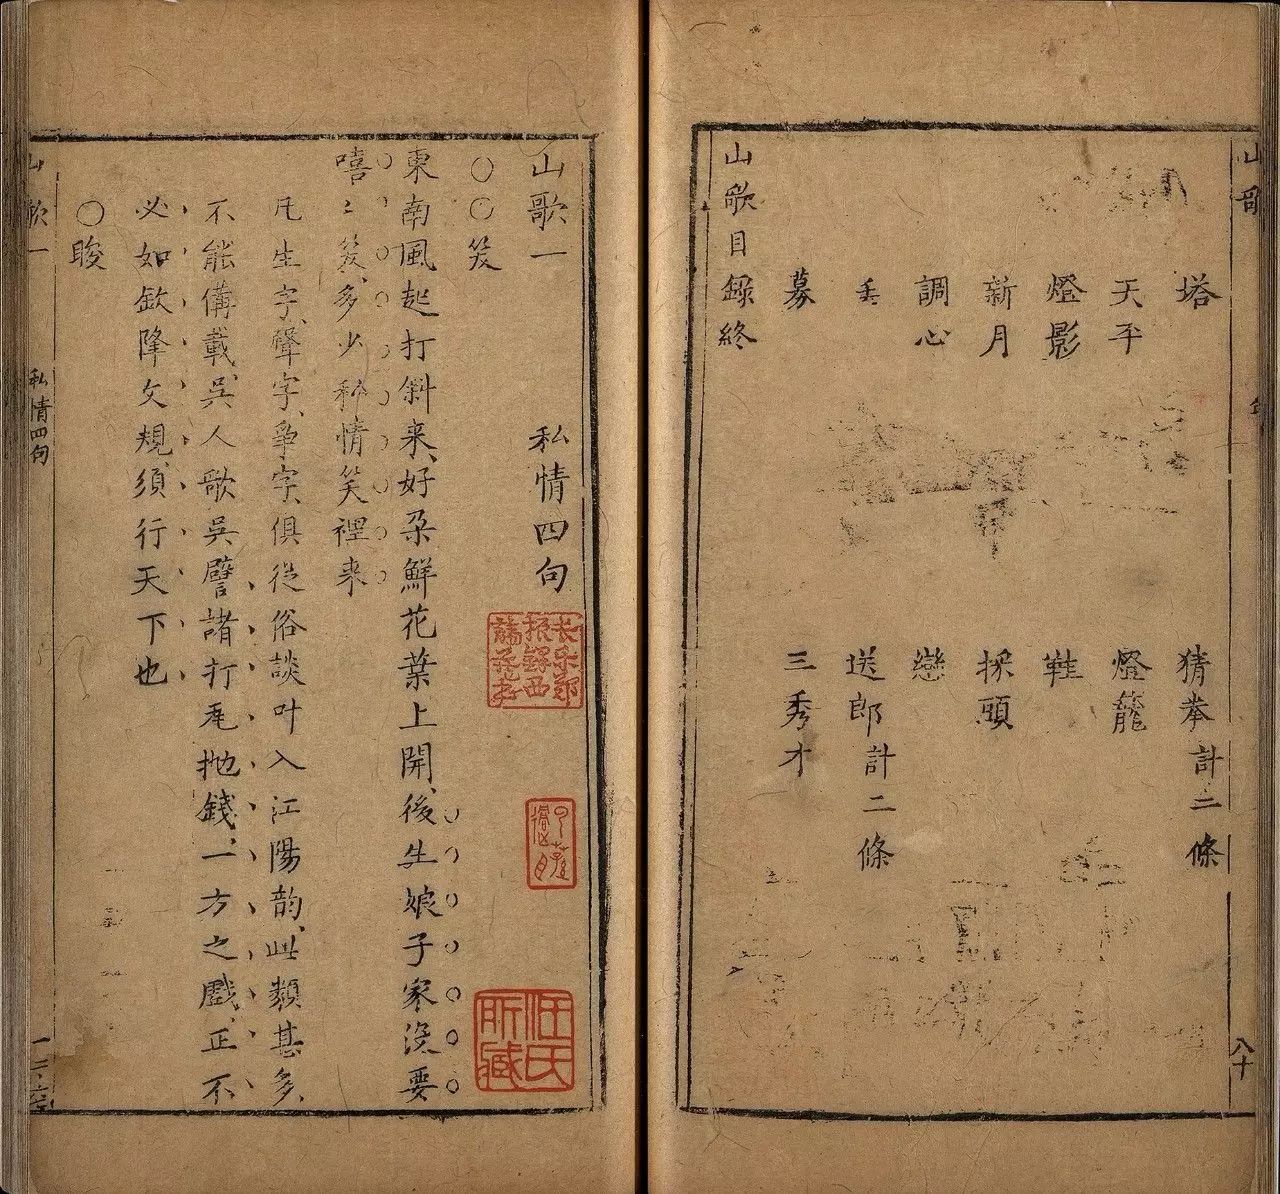 塔　猜拳計二條
天平　燈籠
燈影　鞋
新月　採頭
調心　戀
丢　送郎計二條
募　三秀才
山歌目錄終
八十
山歌一　私情四句
笑
東南風起打斜来、好朶鮮花葉上開、後生娘子家沒要
嘻〻笑、多少私情笑裡来
凡生字、聲字、爭字、俱從俗談叶入江陽韵、此類甚多、
不能備載、吳人歌吳、譬諸打瓦抛錢、一方之戲、正不
必如欽降文規、須行天下也
睃
山歌一　私情四句
長樂鄭振鐸西諦藏書
汪氏所藏